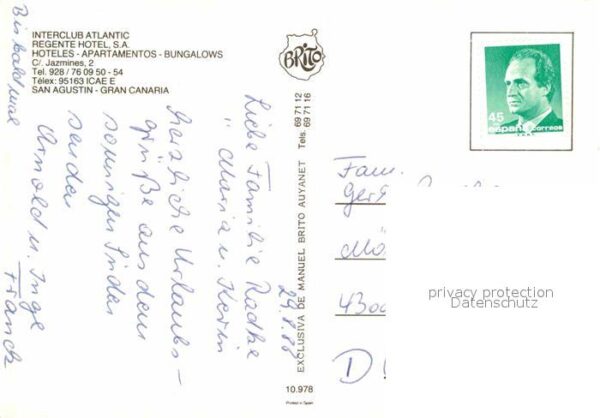 INTERCLUB ATLANTIC
REGENTE HOTEL, S.A.
HOTELES - APARTAMENTOS - BUNGALOWS
C/. Jazmines, 2
Tel. 928 / 76 09 50 - 54
Télex: 95163 ICAE E
SAN AGUSTIN - GRAN CANARIA
BRITO
29.8.88
Liebe Familie Radtke
Maria u. Kevin
Herzliche Urlaubs-
grüße aus dem
sonnigen Süden
senden
Arnold u. Inge
Franck
Bis bald mal
EXCLUSIVA DE MANUEL BRITO AUYANET Tels. 69 71 12
69 71 16
10.978
Printed in Spain
45
españa correos
Fam.
Gerh
Mö
4300
D
privacy protection
Datenschutz